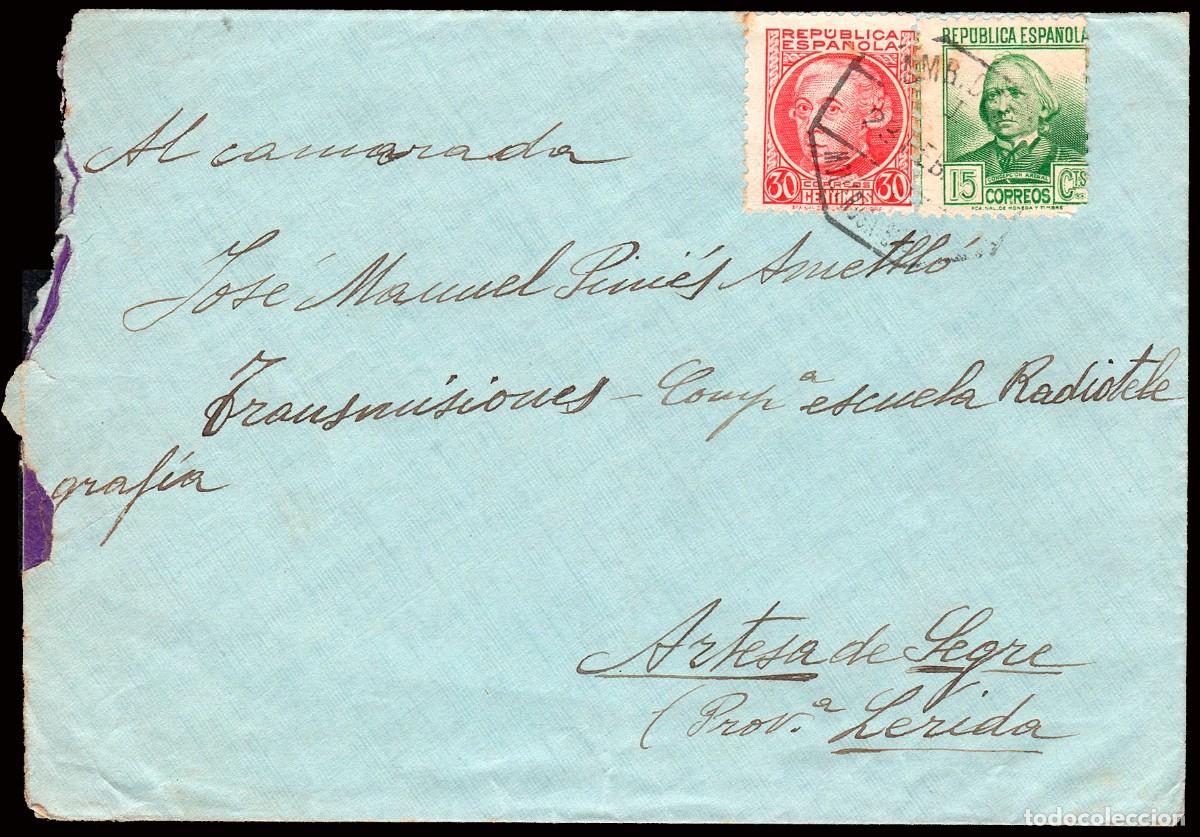 REPÚBLICA
ESPAÑOLA
30 CORREOS 30
CENTIMOS
REPÚBLICA ESPAÑOLA
CONCEPCION ARENAL
15 CORREOS CTS
FCA. NAL. DE MONEDA Y TIMBRE
AMB.
FEB
Al camarada
José Manuel Piniés Ametlló
Transmisiones - Compª escuela Radiotele
grafía
Artesa de Segre
(Prov.ª Lerida
todocoleccion